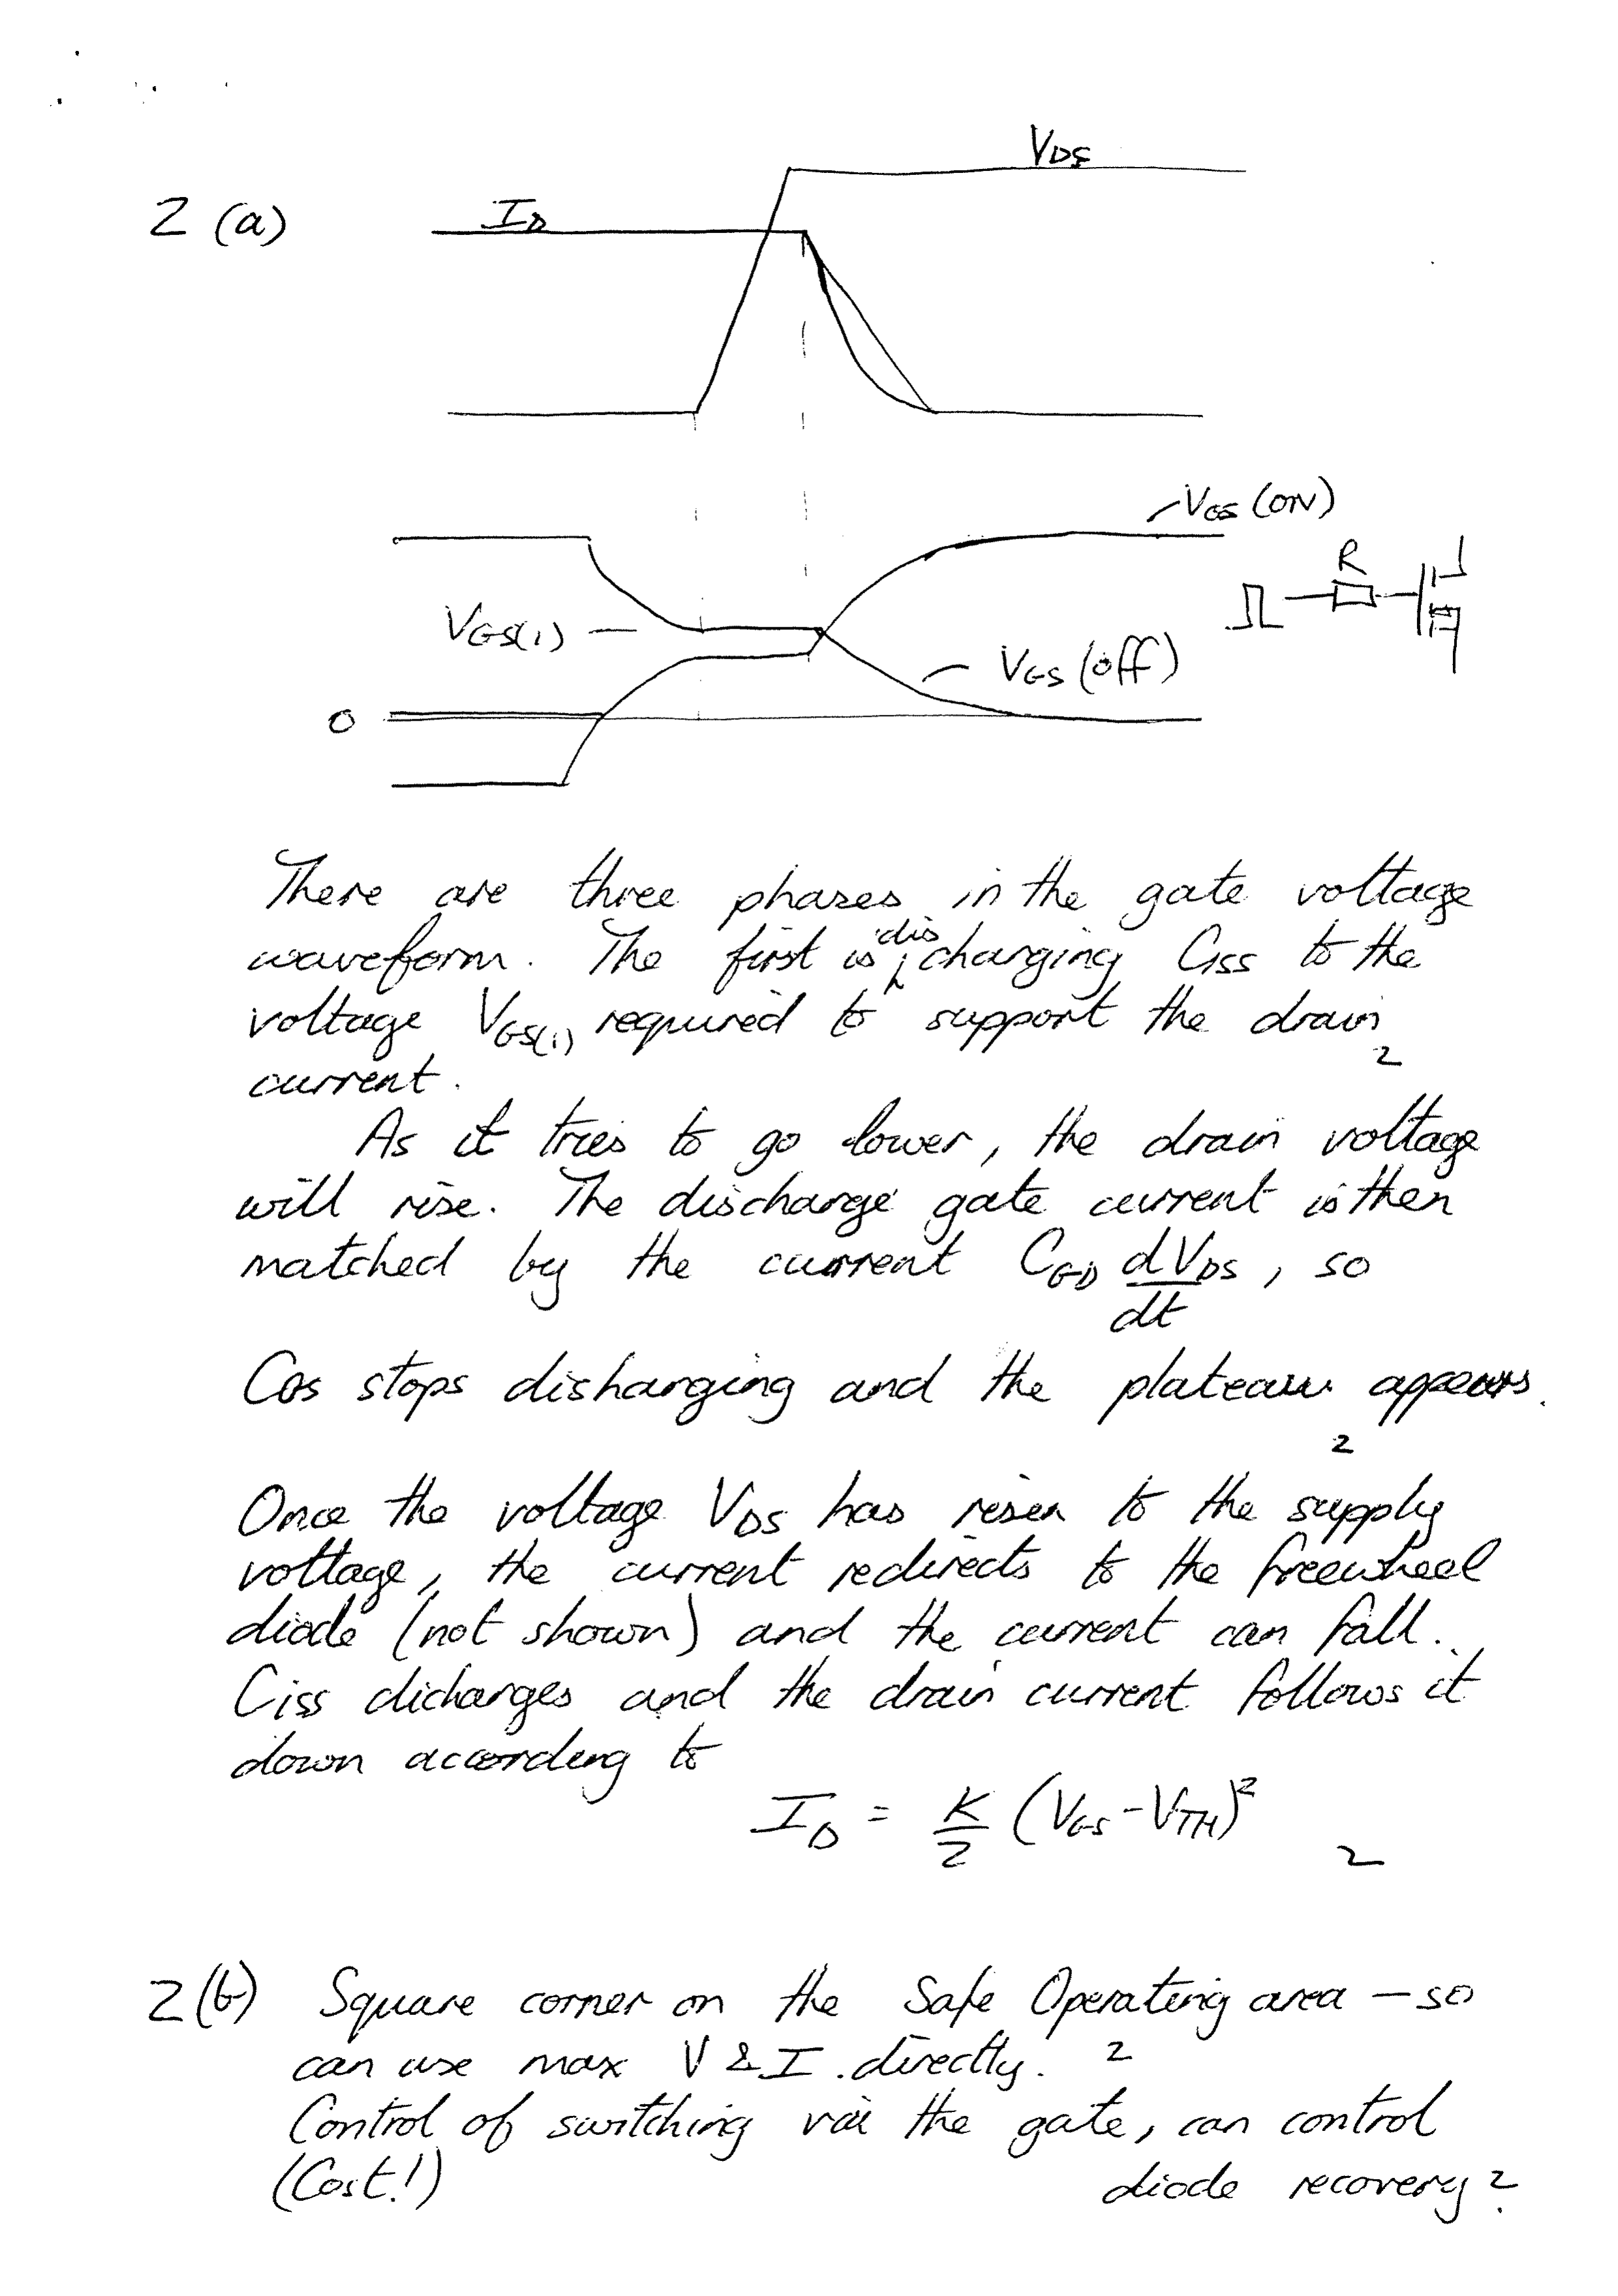 V_DS
2 (a)
I_D
V_GS (ON)
R
V_GS(1)
V_GS (off)
0
There are three phases in the gate voltage
waveform. The first is discharging Ciss to the
voltage V_GS(1) required to support the drain
2
current.
As it tries to go lower, the drain voltage
will rise. The discharge gate current is then
matched by the current C_GD dV_DS/dt, so
C_GS stops disharging and the plateau appears.
2
Once the voltage V_DS has risen to the supply
voltage, the current redirects to the freewheel
diode (not shown) and the current can fall.
Ciss dicharges and the drain current follows it
down according to
I_D = K/2 (V_GS - V_TH)²
2
2(b) Square corner on the Safe Operating area - so
can use max V & I directly. 2
Control of switching via the gate, can control
(Cost!) diode recovery. 2